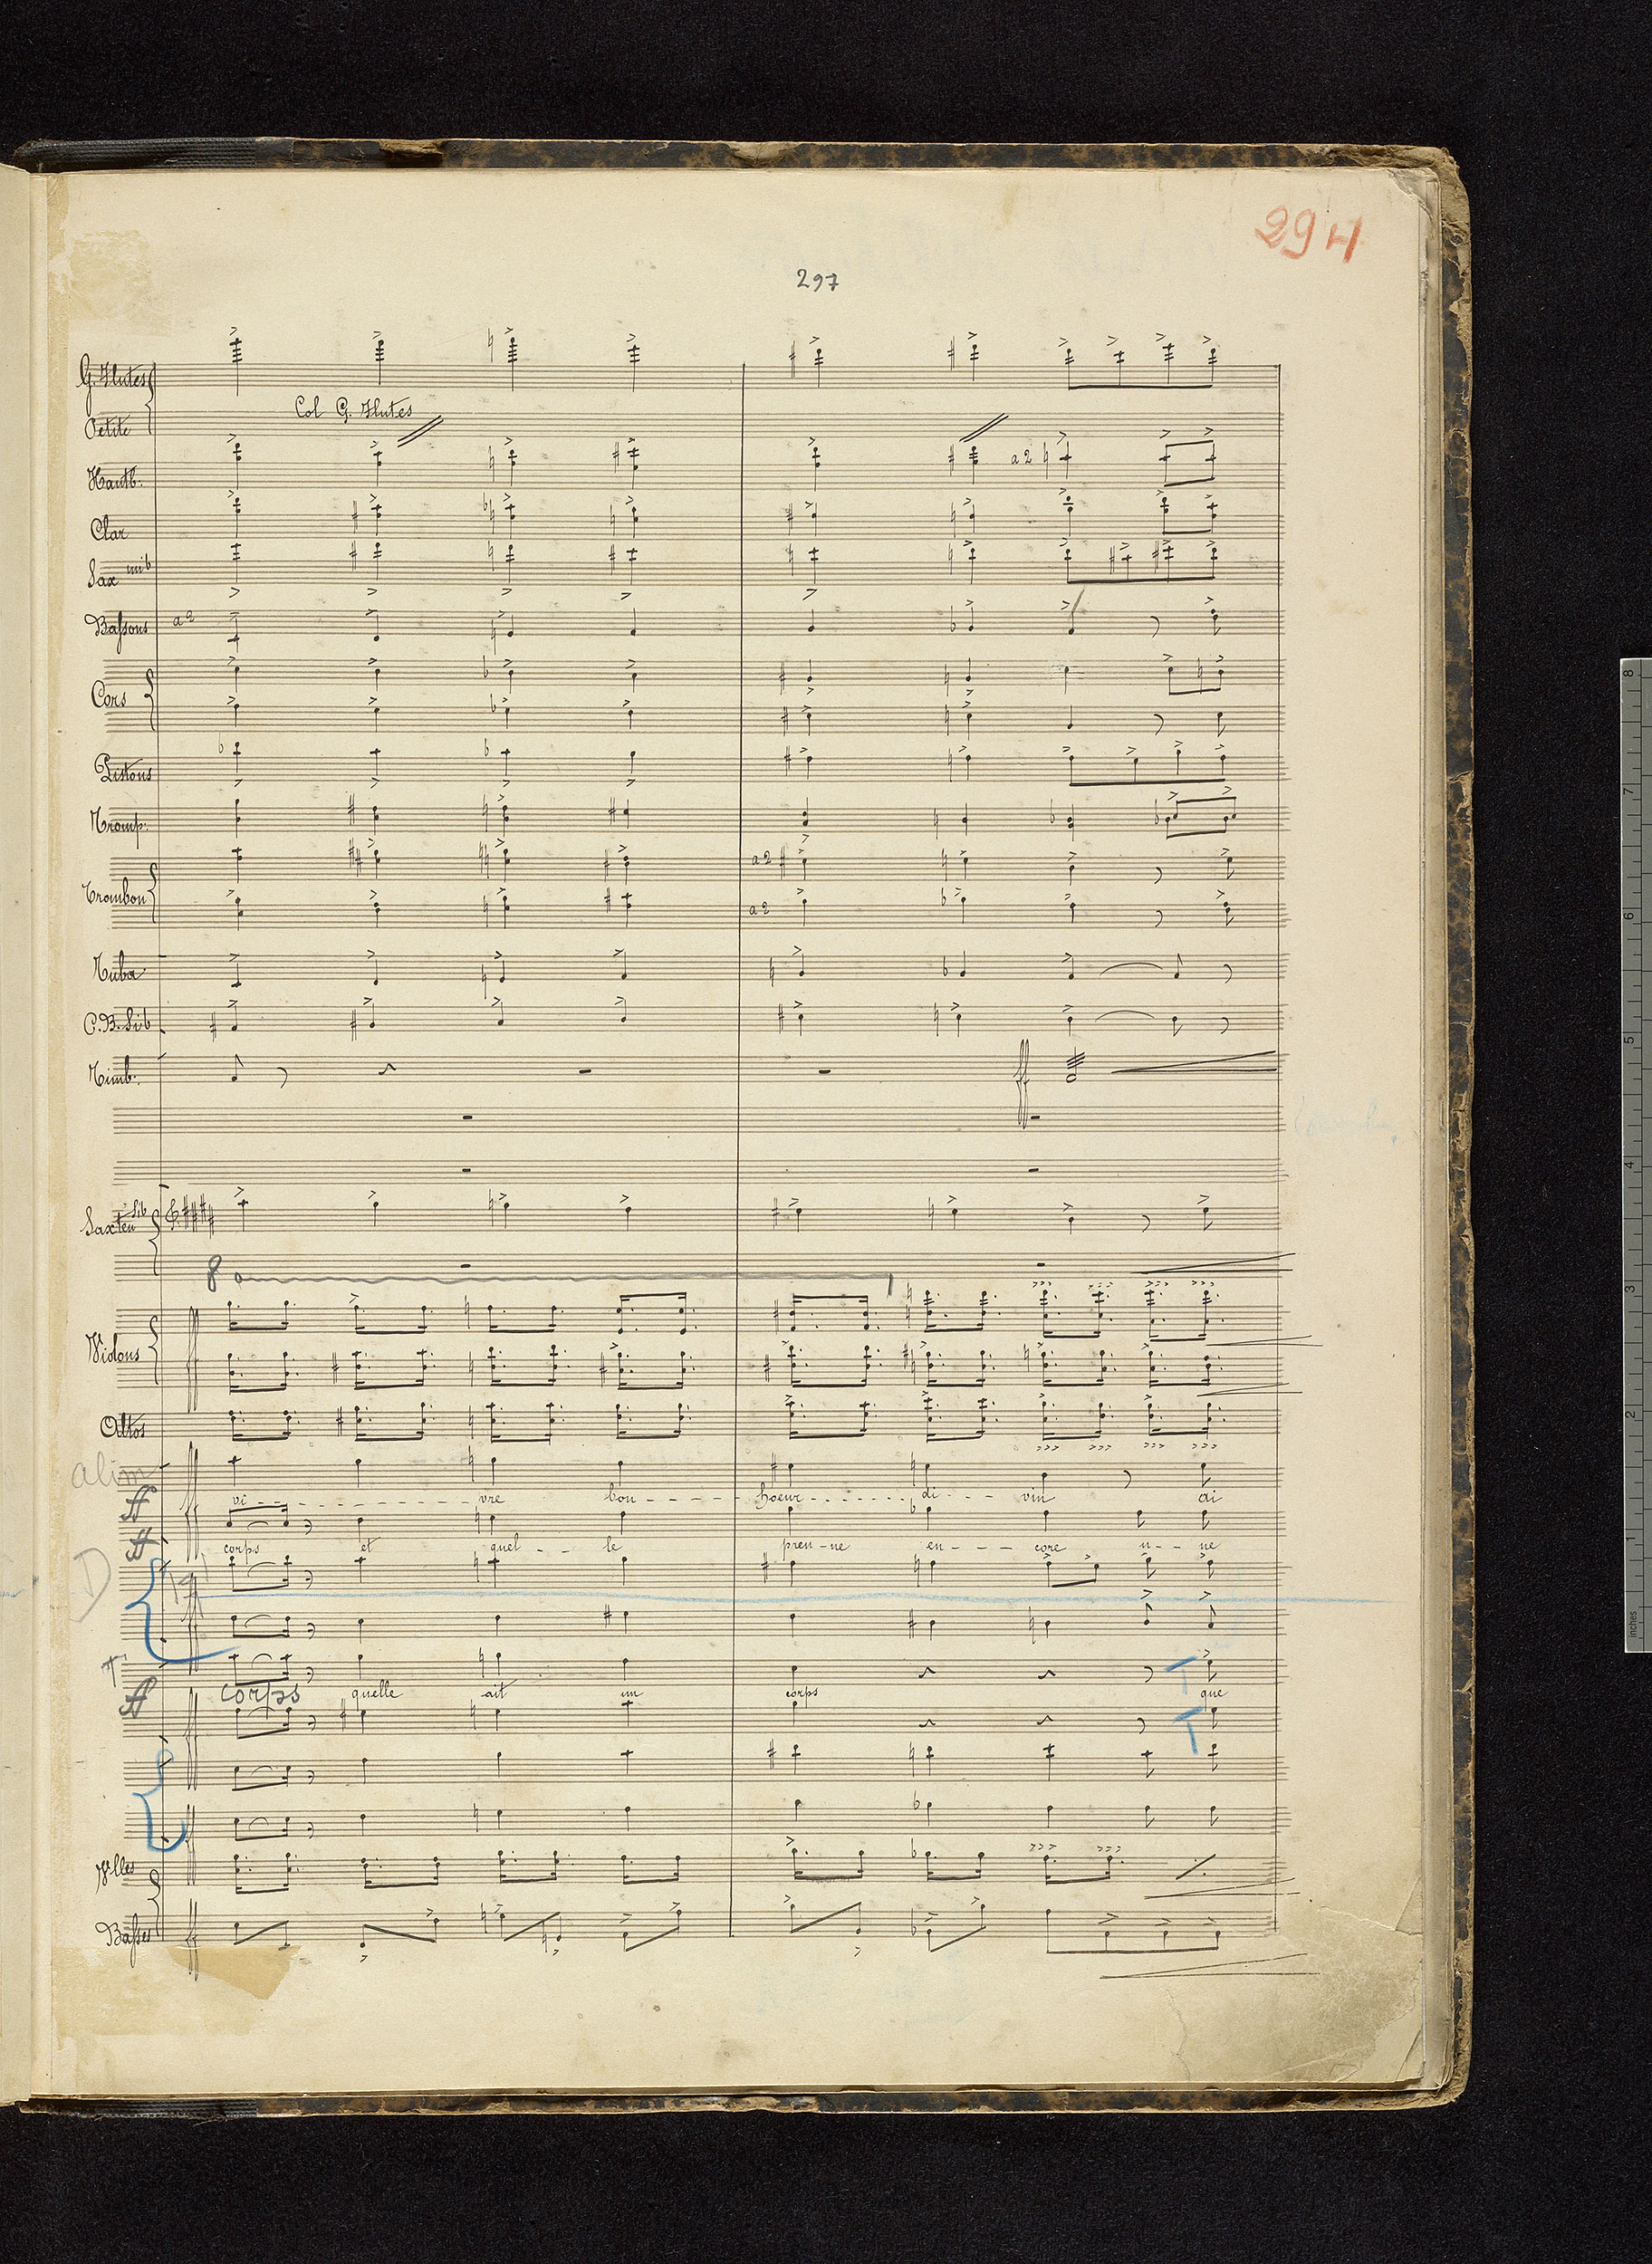 294
297
G. Flutes
Col G. Flutes
Petite
Hautb.
a 2
Clar
Sax mib
Bassons a 2
Cors
Pistons
Tromp.
a 2
Trombon
a 2
Tuba
C.B. Sib
Timb.
ff
Sax ten Sib
8
Vlons
Altos
alim
ff
vi - - - vre bon - - - hoeur - - - di - - vin ai
ff
corps et quel - - le pren - ne en - - - core u - - ne
D
T
ff
corps quelle ait un corps T que
T
Vlles
Basses